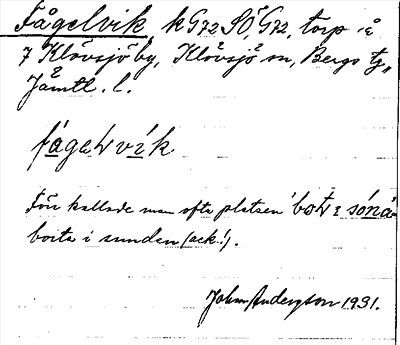 Fågelvik, kG72SÖ, G72, torp å
7 Klövsjö by, Klövsjö sn, Bergs tg,
Jämtl. l.
fágeƚvík
Förr kallade man ofta platsen bot i sóná
borta i sunden (ack!).
Johan Anderzson 1931.